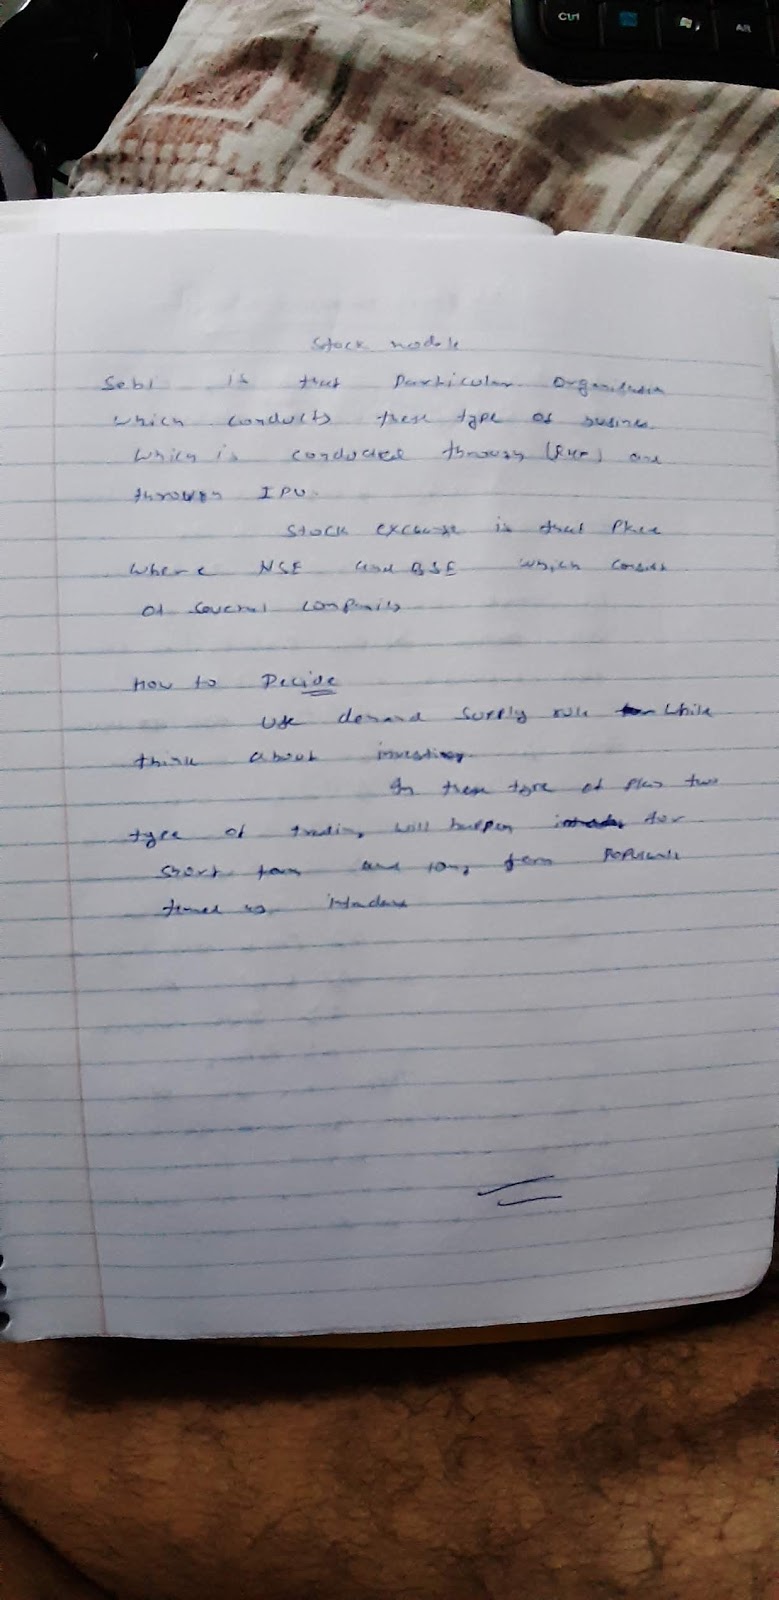 Ctrl
Alt
Stock
Sebi is that Particular Organisation
which conducts these type of busines
which is conducted through
through IPO.
Stock exchange is that Place
where NSE and BSE which consists
of several companies
How to Decide
use demand supply rule while
think about investing
In these type of two
type of trading will happen for
short and long term
as